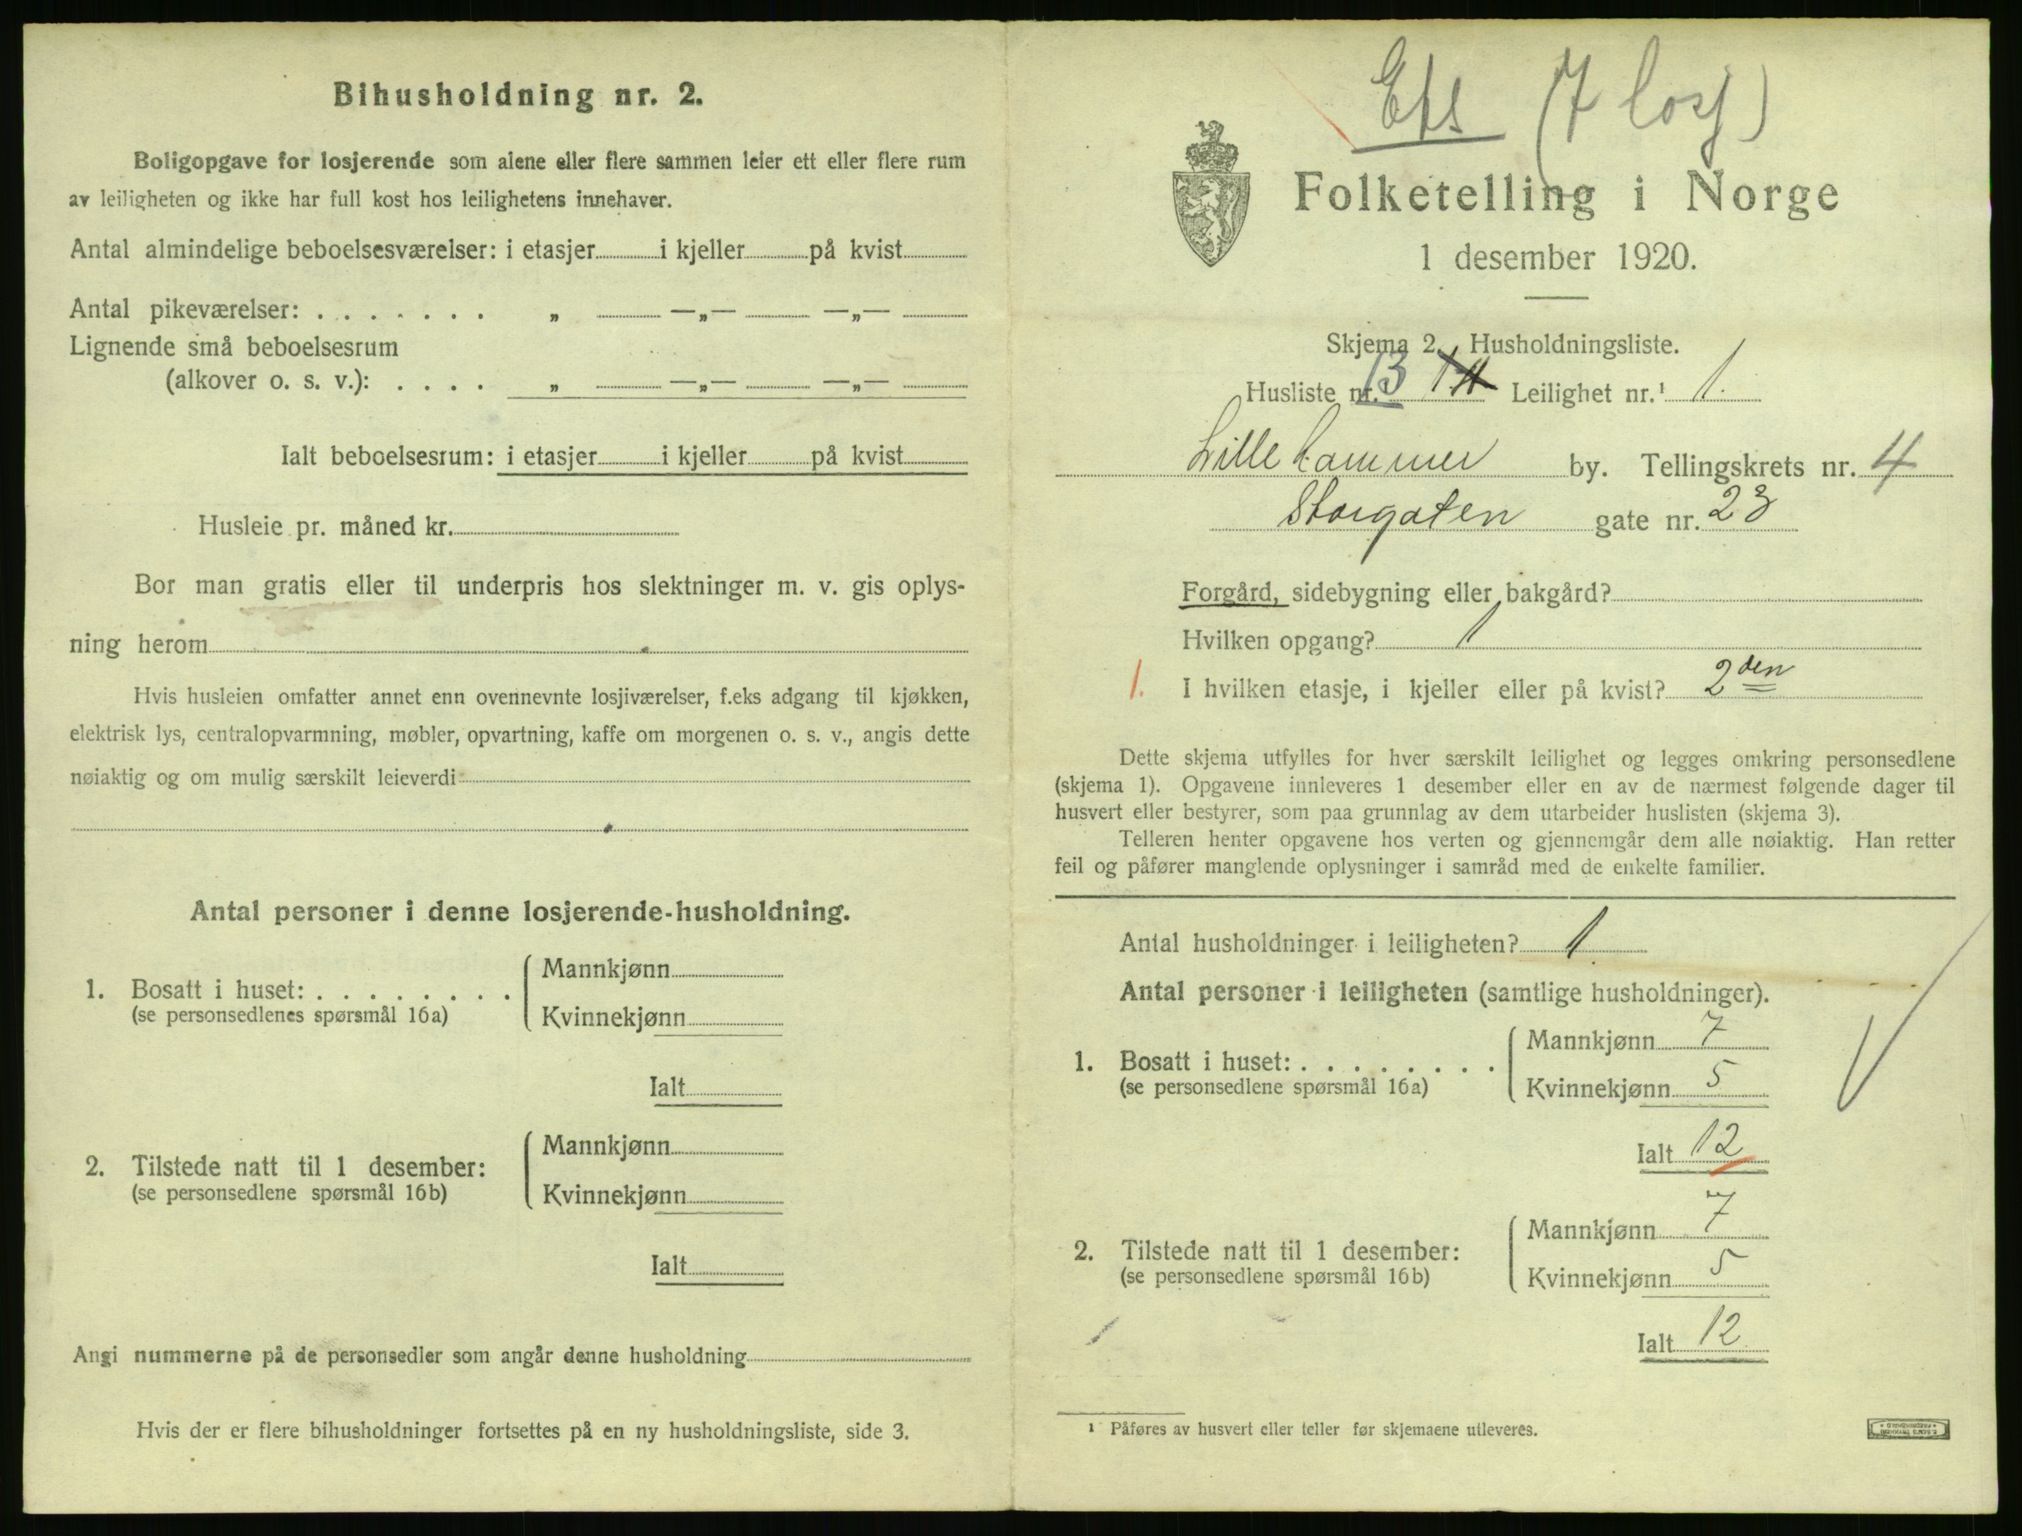 Bihusholdning nr. 2.
Boligopgave for losjerende som alene eller flere sammen leier ett eller flere rum
av leiligheten og ikke har full kost hos leilighetens innehaver.
Antal almindelige beboelsesværelser: i etasjer i kjeller på kvist
Antal pikeværelser: . . . . . . . „ —„— —„—
Lignende små beboelsesrum
(alkover o. s. v.): . . . . „ —„— —„—
Ialt beboelsesrum: i etasjer i kjeller på kvist
Husleie pr. måned kr.
Bor man gratis eller til underpris hos slektninger m. v. gis oplys-
ning herom
Hvis husleien omfatter annet enn ovennevnte losjiværelser, f.eks adgang til kjøkken,
elektrisk lys, centralopvarmning, møbler, opvartning, kaffe om morgenen o. s. v., angis dette
nøiaktig og om mulig særskilt leieverdi
Antal personer i denne losjerende-husholdning.
1. Bosatt i huset: . . . . . . . . Mannkjønn
(se personsedlenes spørsmål 16a) Kvinnekjønn
Ialt
2. Tilstede natt til 1 desember: Mannkjønn
(se personsedlene spørsmål 16b) Kvinnekjønn
Ialt
Angi nummerne på de personsedler som angår denne husholdning
Hvis der er flere bihusholdninger fortsettes på en ny husholdningsliste, side 3.
(7 losj)
Folketelling i Norge
1 desember 1920.
Skjema 2. Husholdningsliste.
Husliste nr. 13 Leilighet nr.¹ 1.
Lillehammer by. Tellingskrets nr. 4
Storgaten gate nr. 23
Forgård, sidebygning eller bakgård?
Hvilken opgang? 1
1. I hvilken etasje, i kjeller eller på kvist? 2den
Dette skjema utfylles for hver særskilt leilighet og legges omkring personsedlene
(skjema 1). Opgavene innleveres 1 desember eller en av de nærmest følgende dager til
husvert eller bestyrer, som paa grunnlag av dem utarbeider huslisten (skjema 3).
Telleren henter opgavene hos verten og gjennemgår dem alle nøiaktig. Han retter
feil og påfører manglende oplysninger i samråd med de enkelte familier.
Antal husholdninger i leiligheten? 1
Antal personer i leiligheten (samtlige husholdninger).
1. Bosatt i huset: . . . . . . . . Mannkjønn 7
(se personsedlene spørsmål 16a) Kvinnekjønn 5
Ialt 12
2. Tilstede natt til 1 desember: Mannkjønn 7
(se personsedlene spørsmål 16b) Kvinnekjønn 5
Ialt 12
¹ Påføres av husvert eller teller før skjemaene utleveres.